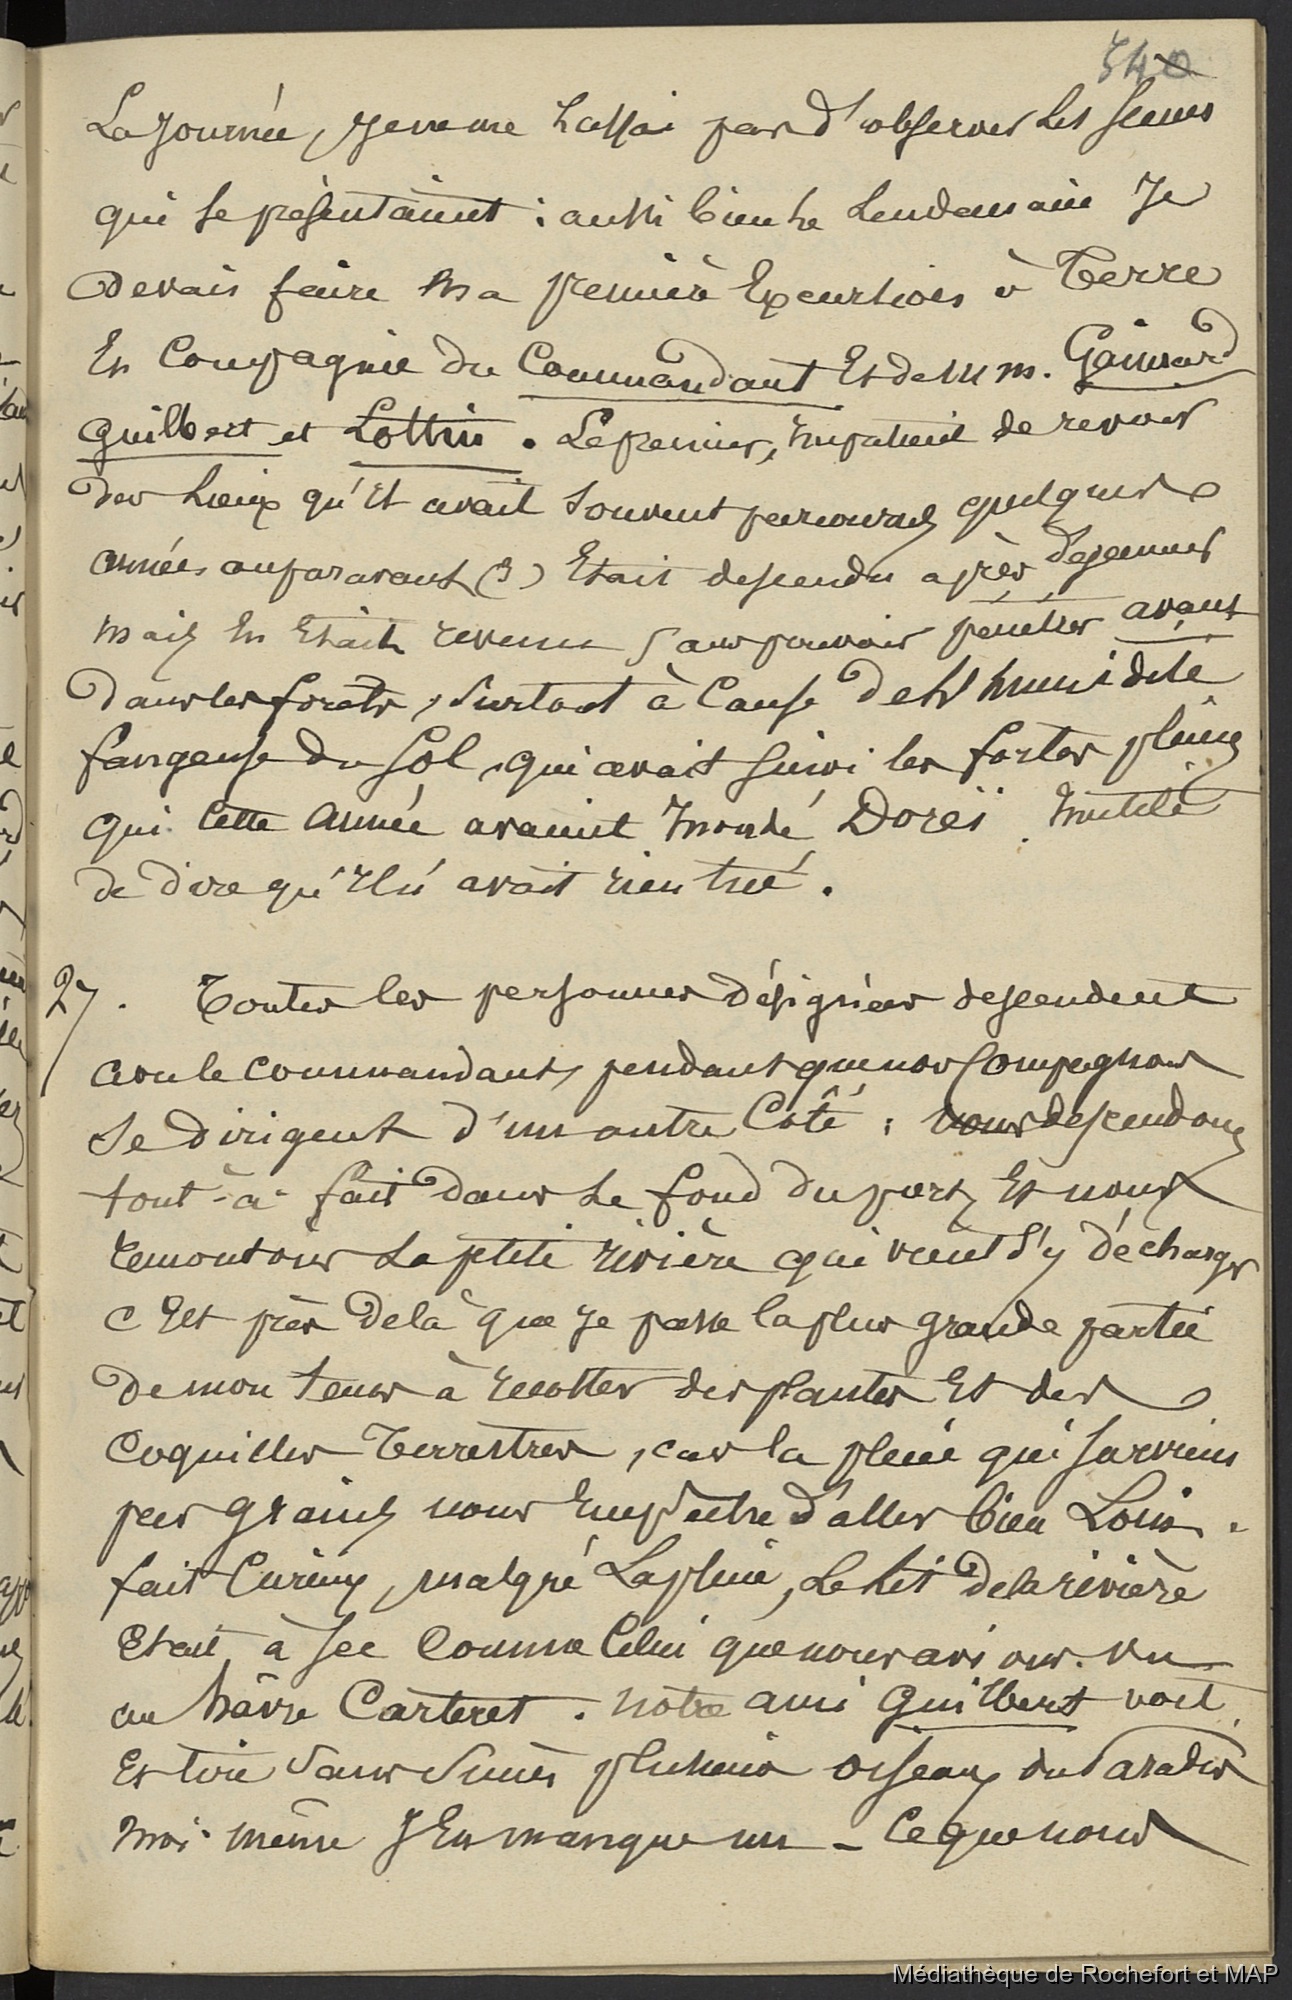 540
La journée, je ne me lassai pas d'observer les scènes
qui se présentaient : aussi bien le lendemain Je
devais faire ma première Excursion à Terre
En Compagnie du Commandant Et de M m. Gaimard
Guilbert et Lottin. Le premier, impatient de revoir
des Lieux qu'il avait souvent parcourus quelques
années auparavant (3) Etait descendu après déjeuner
mais En Etait revenu sans pouvoir pénétrer avant
dans les forets, surtout à Cause de l'humidité
fangeuse du sol, qui avait suivi les fortes pluies
qui cette année avaient inondé Doreï. Inutile
de dire qu'il n'avait rien tué.
27. Toutes les personnes désignées descendent
avec le commandant, pendant que nos Compagnons
se dirigent d'un autre Côté : nous descendons
tout-à-fait dans le fond du port, Et nous
remontons la petite rivière qui vient s'y décharger
C'Est près de là que je passe la plus grande partie
de mon tems à récolter des plantes Et des
Coquilles Terrestres, car la pluie qui survient
par grains nous Empêche d'aller bien Loin.
fait Curieux, malgré La pluie, Le Lit de la rivière
Etait à sec Comme Celui que nous avions vu
au hâvre Carteret. Notre ami Guilbert voit
Et tire sans succès plusieurs oiseaux du Paradis
moi-même J'En manque un - Ce que nous
Médiathèque de Rochefort et MAP